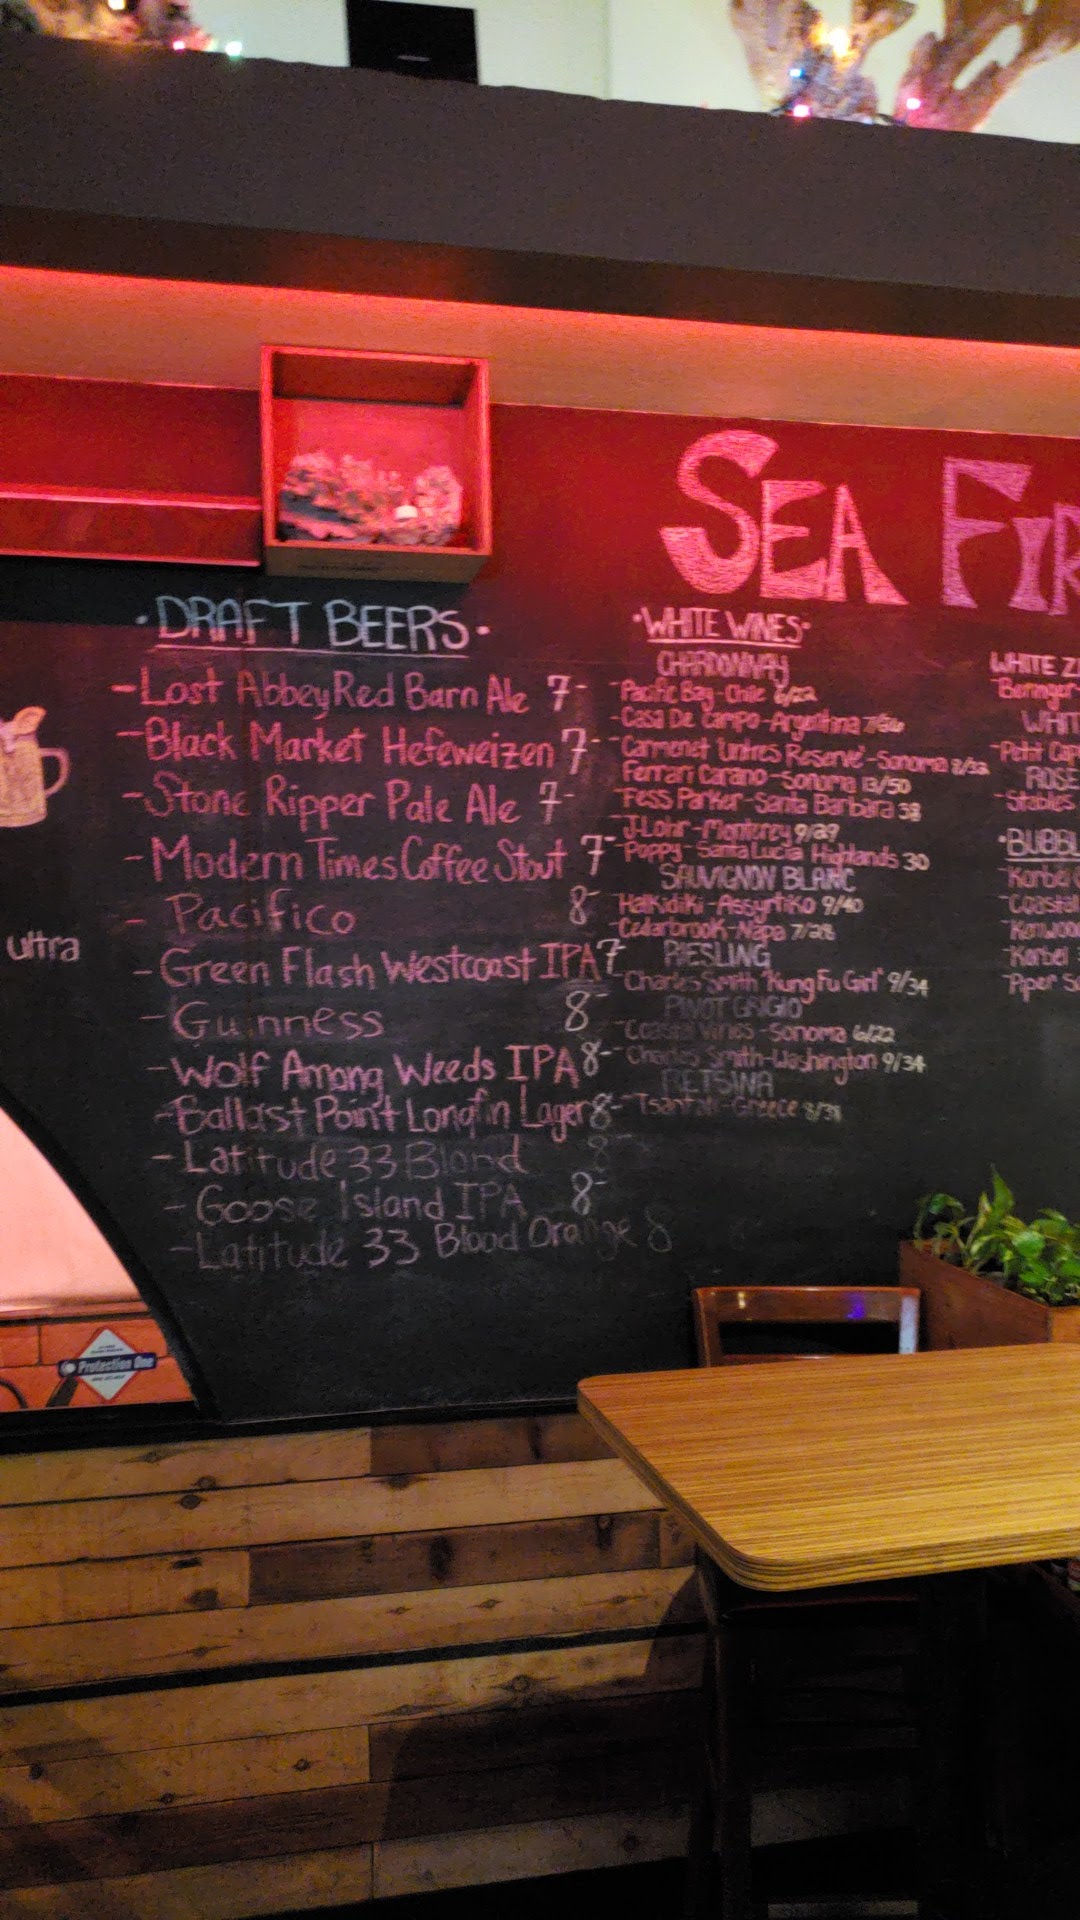 SEA FIR
·DRAFT BEERS·
-Lost Abbey Red Barn Ale 7-
-Black Market Hefeweizen 7-
-Stone Ripper Pale Ale 7-
-Modern Times Coffee Stout 7-
- Pacifico 8-
-Green Flash Westcoast IPA 7-
-Guinness 8-
-Wolf Among Weeds IPA 8-
-Ballast Point Longfin Lager 8-
-Latitude 33 Blond 8-
-Goose Island IPA 8-
-Latitude 33 Blood Orange 8
ultra
·WHITE WINES·
CHARDONNAY
-Pacific Bay-Chile 6/22
-Casa De Campo-Argentina
-Carmenet 'Vintres Reserve'-Sonoma 8/32
Ferrari Carano-Sonoma 13/50
-Fess Parker-Santa Barbara 38
-J.Lohr-Monterey 9/29
-Poppy-Santa Lucia Highlands 30
SAUVIGNON BLANC
Halkidiki-Assyrtiko 9/40
-Cedarbrook-Napa 7/28
RIESLING
-Charles Smith "Kung Fu Girl" 9/34
PINOT GRIGIO
-Coastal Vines-Sonoma 6/22
-Charles Smith-Washington 9/34
RETSINA
-Tsantali-Greece 8/31
WHITE Z
-Beringer-
WHIT
-Petit
ROSE
-Stables
·BUBBL
-Korbel
-Coastal
-Kenwood
-Korbel
-Piper S
Protection One